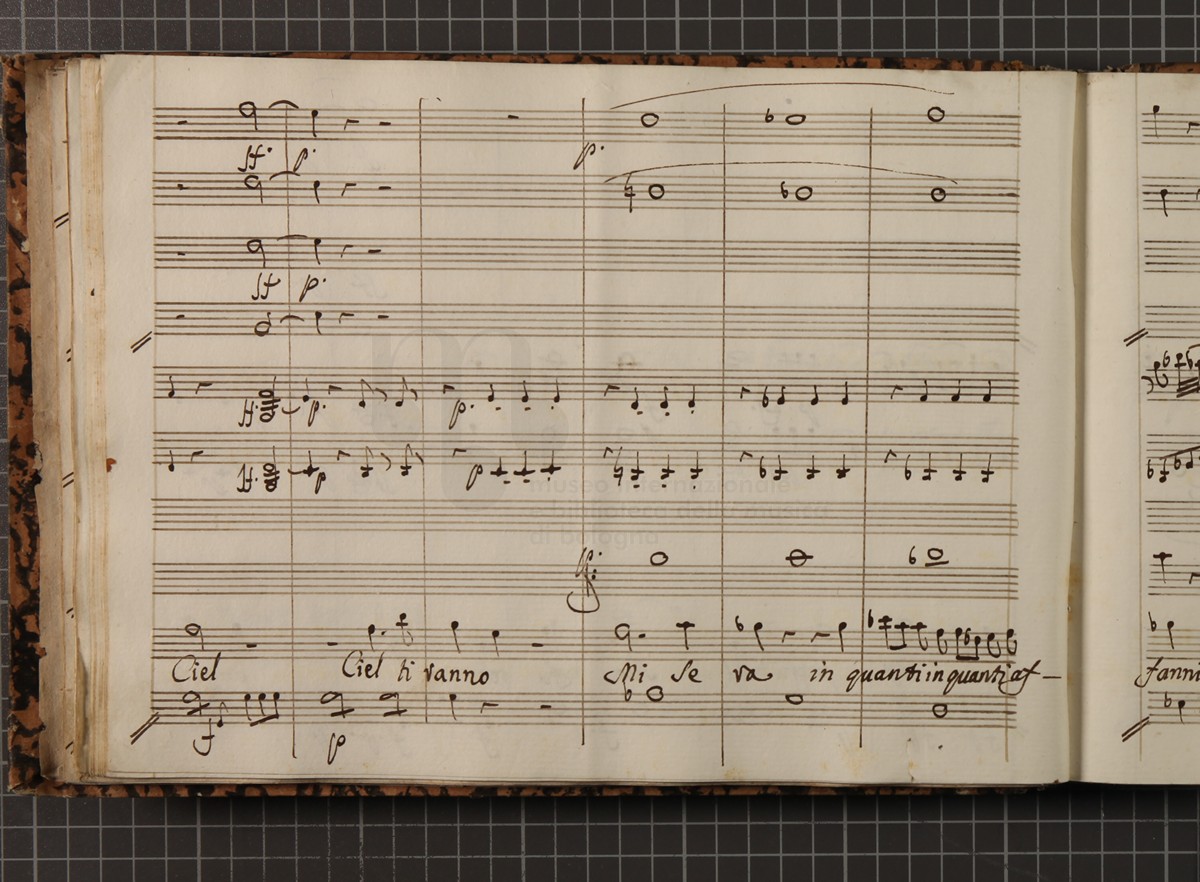 p.
ff. p.
ff p.
ff. p. p.
ff. p p
museo internazionale
e biblioteca della musica
di bologna
p.
Ciel Ciel ti vanno Mi se ra in quanti in quanti af-
fanni
f p